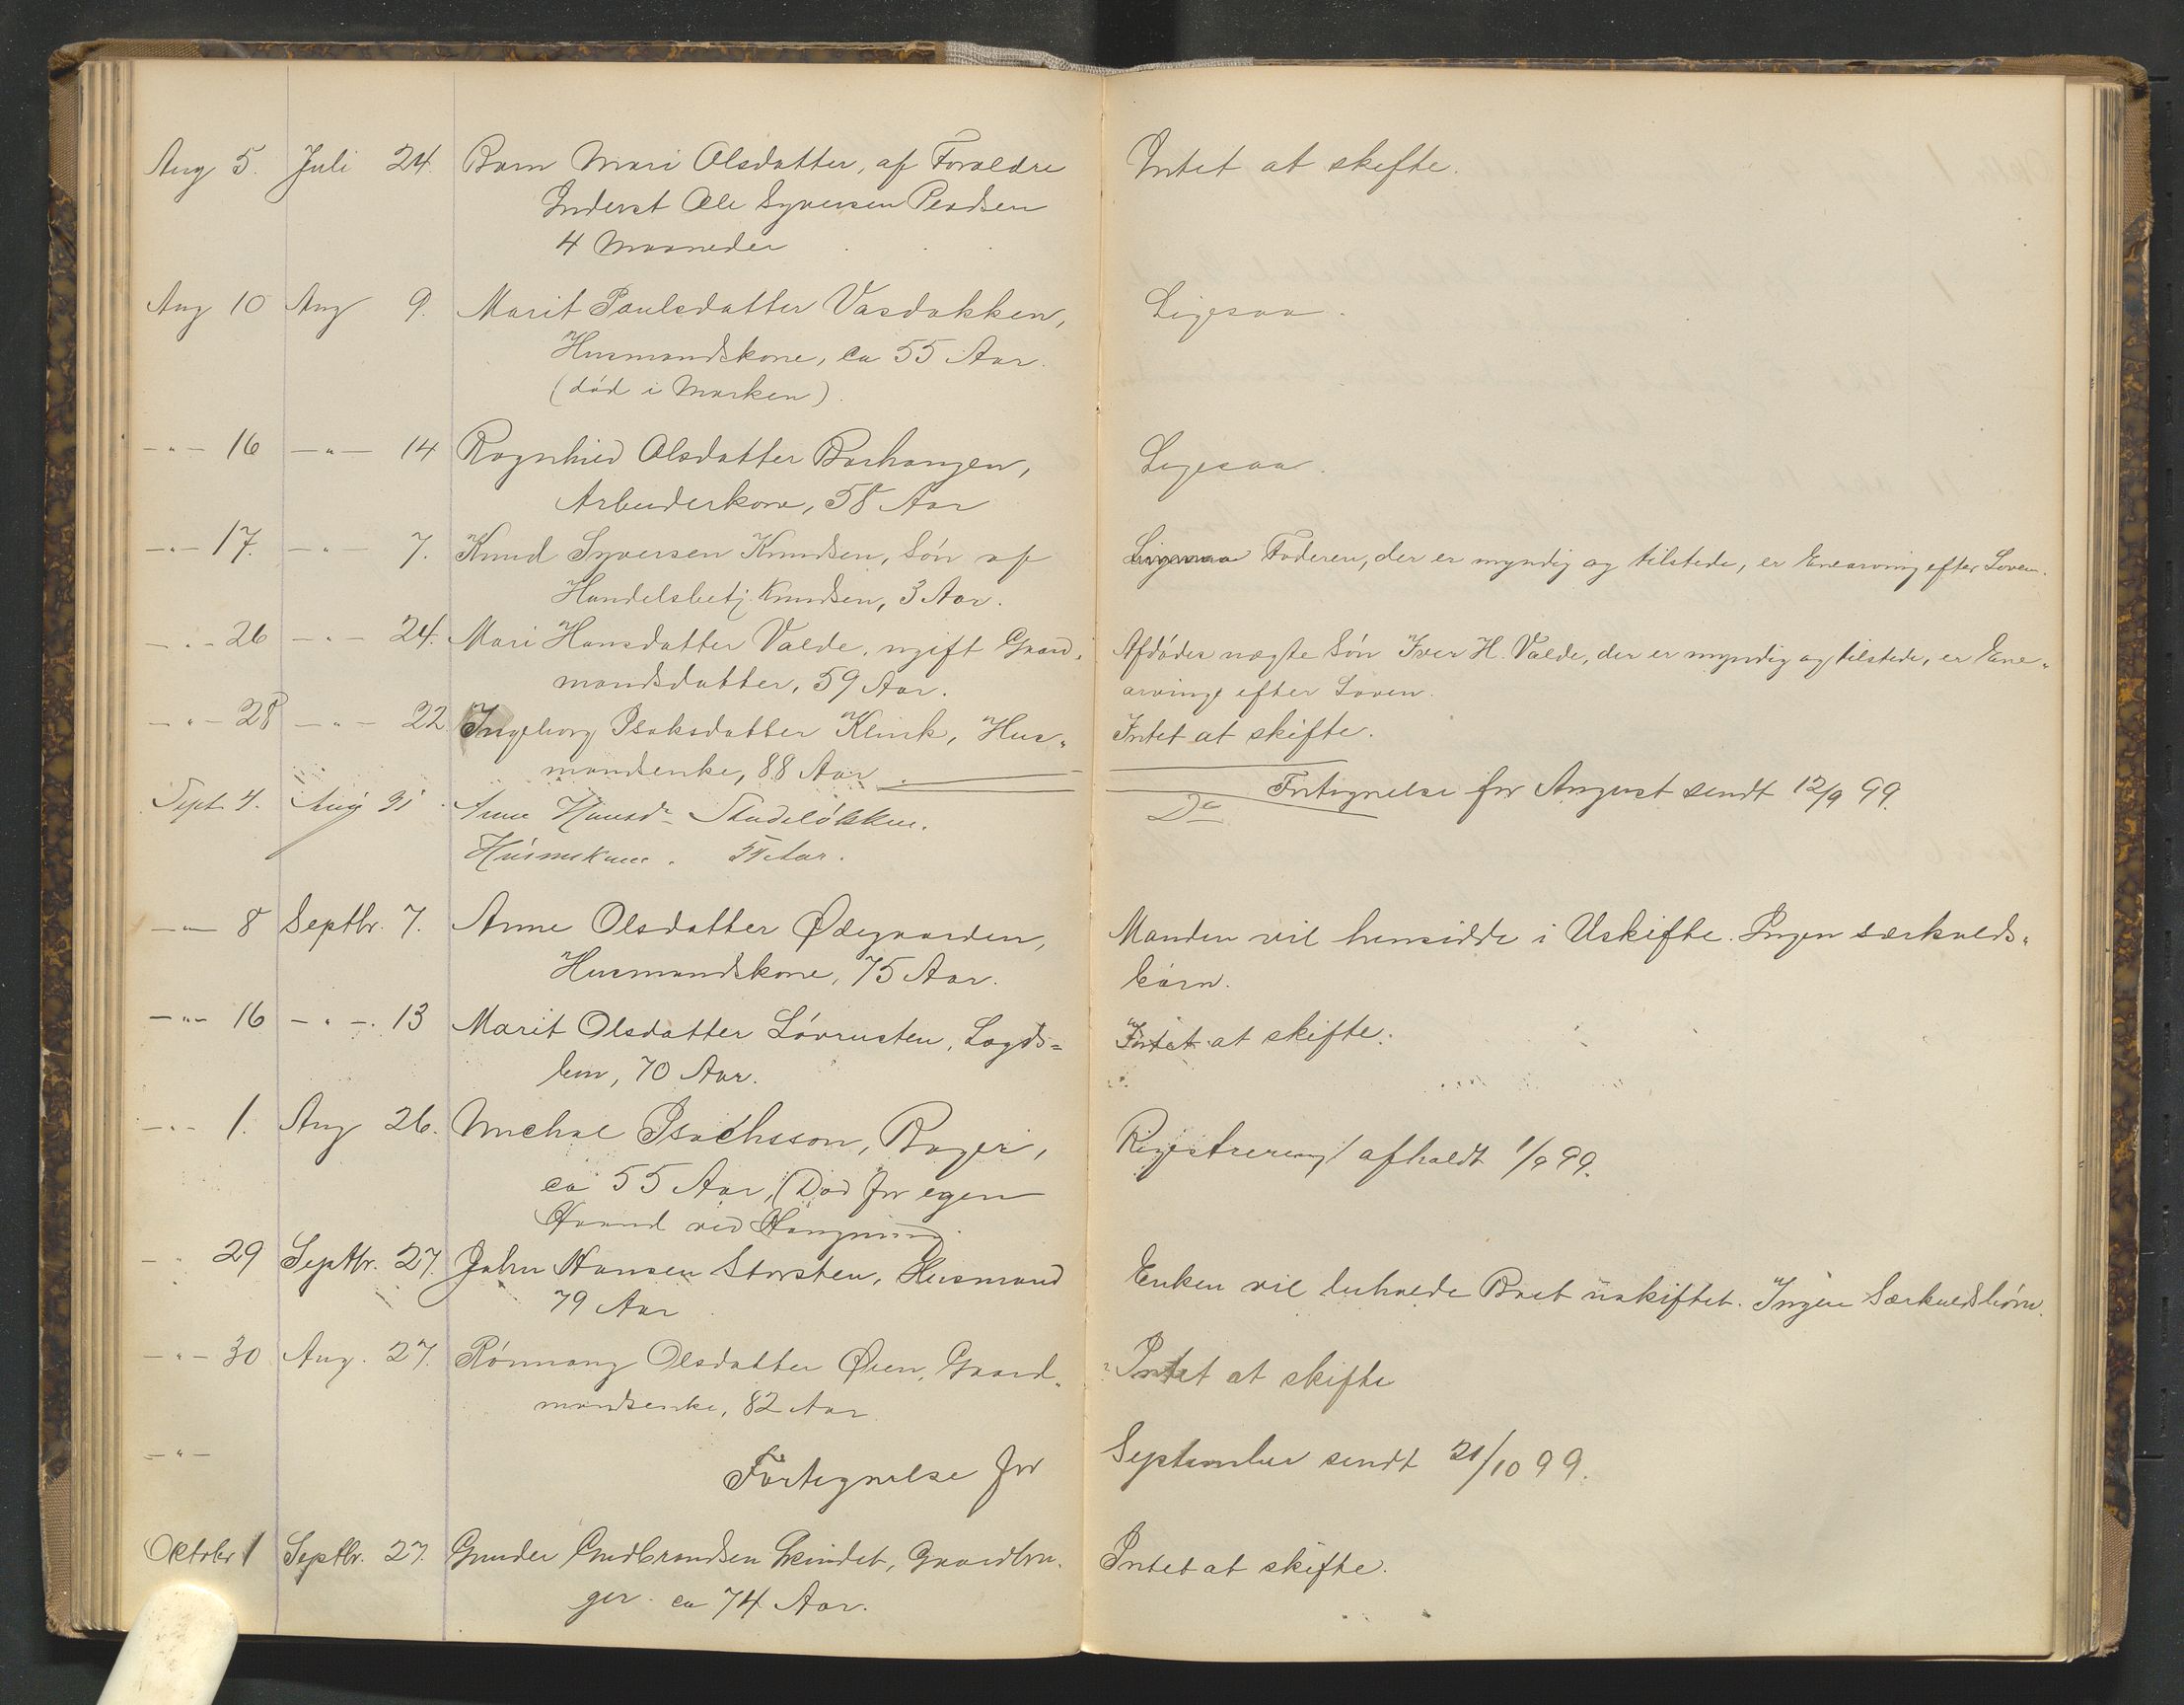 Aug 5. Juli 24. Barn Mari Olsdatter, af Forældre Intet at skifte.
Inderst Ole Syversen
4 Maaneder
Aug 10 Aug 9. Marit Paulsdatter Vasbakken, Ligesaa.
Husmandskone, ca 55 Aar.
(død i Marken).
—"— 16 —"— 14 Ragnhild Olsdatter Barhaugen, Ligesaa.
Arbeiderkone, 58 Aar
—"— 17. —"— 7. Knud Syversen Knudsen, Søn af Ligesaa Faderen, der er myndig og tilstede, er Enearving efter Loven.
Handelsbetj. Knudsen, 3 Aar.
—"— 26 —"— 24. Mari Hansdatter Valde, ugift Gaard- Afdødes uægte Søn Iver H. Valde, der er myndig og tilstede, er Ene-
mandsdatter, 59 Aar. arving efter Loven.
—"— 28 —"— 22 Ingeborg Isaksdatter Klink, Hus- Intet at skifte.
mandsenke, 88 Aar. Fortegnelse for August sendt 12/9 99.
Sept. 4. Aug 31. Anne Hansdr Do
Husmkone.
—"— 8 Septbr. 7. Anne Olsdatter Ødegaarden, Manden vil hensidde i Uskifte. Ingen særkulds-
Husmandskone, 75 Aar. børn.
—"— 16 —"— 13 Marit Olsdatter Løvrusten, Lægds= Intet at skifte.
lem, 70 Aar.
—"— 1. Aug 26. Michal Isachsson, Bager, Registrering afholdt 1/9 99.
ca 55 Aar, (Død for egen
Haand ved Hængning.
—"— 29 Septbr. 27. John Hansen Storsten, Husmand Enken vil beholde Boet uskiftet. Ingen Særkuldsbørn.
79 Aar
—"— 30 Aug. 27. Rønnaug Olsdatter Øien, Gaard- Intet at skifte
mandsenke, 82 Aar
—"— Fortegnelse for September sendt 21/10 99.
Oktober 1 Septbr. 27. Gunder Gudbrandsen Skindet, Gaardbru- Intet at skifte.
ger. ca 74 Aar.